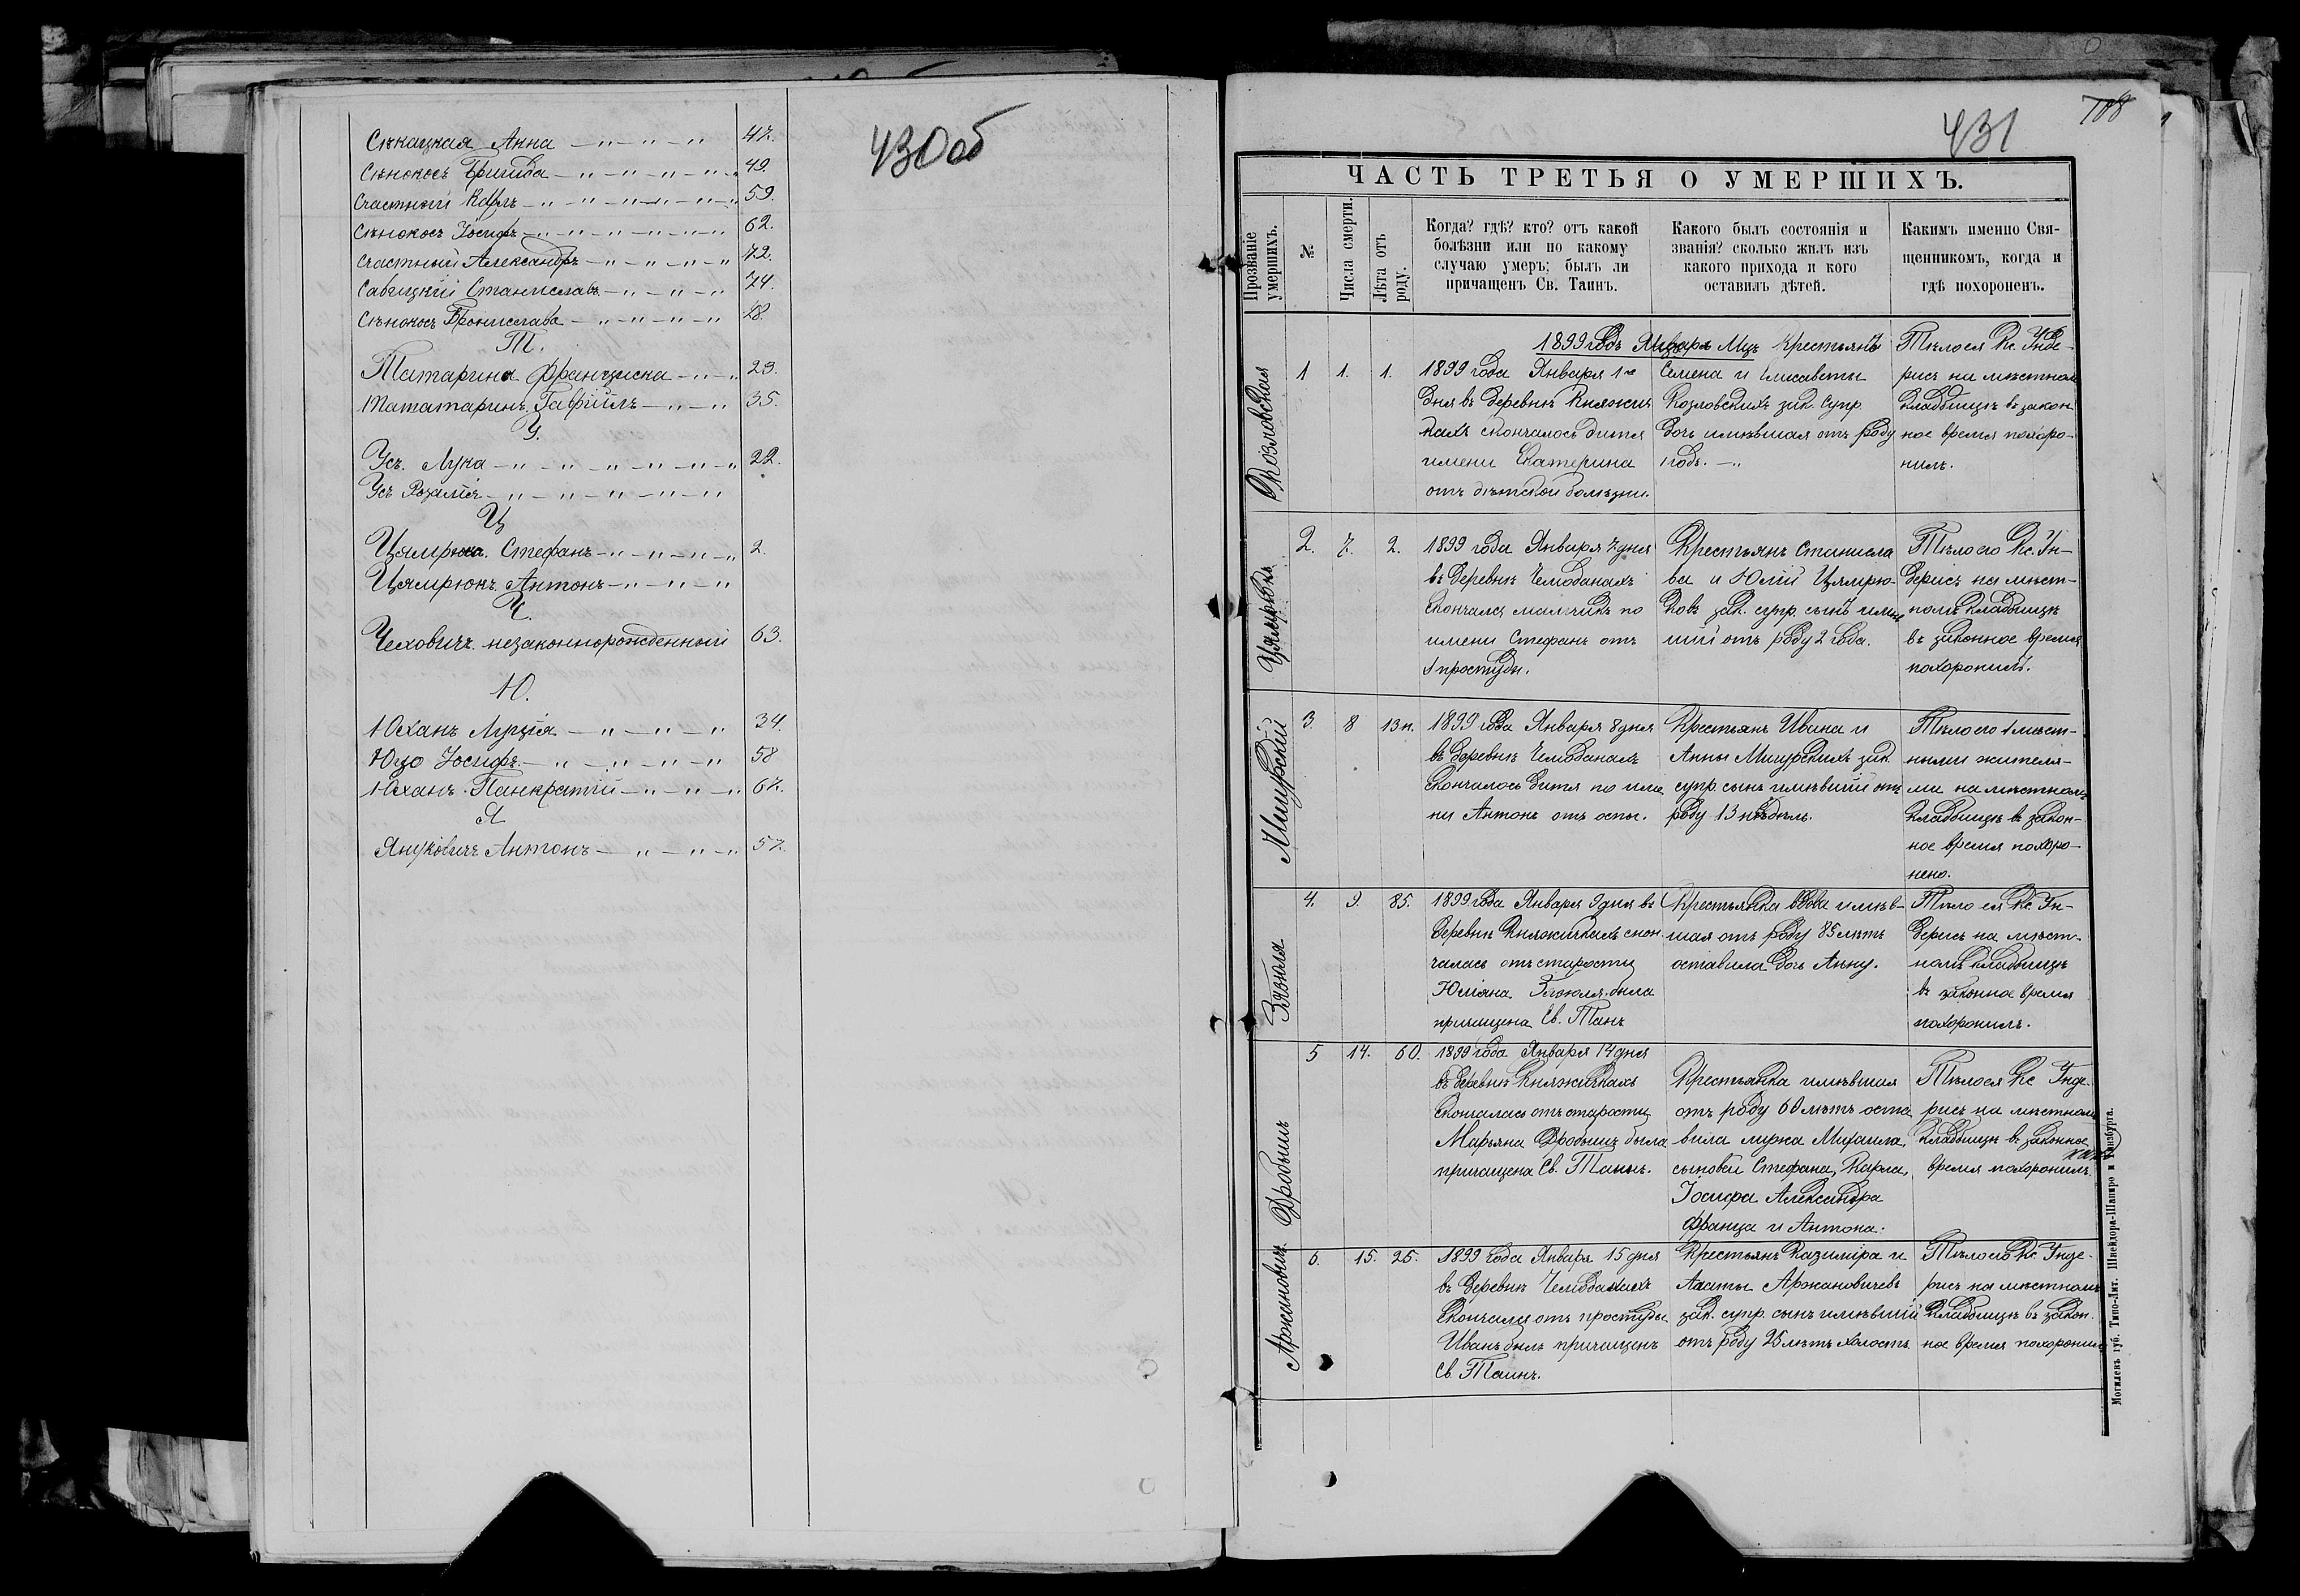 430об
Сѣкацкая Анна —"—"—" 47.
Сѣнокосъ Бригида —"—"—"—" 49.
Счастный Карлъ —"—"—"—"—" 59.
Сѣнокосъ Іосифъ —"—"—"—"—" 62.
Счастный Александръ —"—"—"—" 72.
Савицкій Станиславъ —"—"—" 74.
Сѣнокосъ Бронислава —"—"—"—" 28.
Т.
Татарина Франциска —"—" 29.
Тататаринъ Гавріилъ —"—" 35.
У.
Усъ Лука —"—"—"—"—"—" 22.
Усъ Розалія —"—"—"—"—"
Ц
Цямрюка Стефанъ —"—"—"—" 2.
Цямрюкъ Антонъ —"—"—"
Ч.
Чеховичъ незаконнорожденный 63.
Ю.
Юханъ Луція —"—"—"—" 34.
Юзо Іосифъ —"—"—"—"—" 58
Юханъ Панкратій —"—"—" 67.
Я
Януковичъ Антонъ —"—"—" 57.
431
188
ЧАСТЬ ТРЕТЬЯ О УМЕРШИХЪ.
Прозваніе умершихъ.
№
Числа смерти.
Лѣта отъ роду.
Когда? гдѣ? кто? отъ какой
болѣзни или по какому
случаю умеръ; былъ ли
причащенъ Св. Таинъ.
Какого былъ состоянія и
званія? сколько жилъ изъ
какого прихода и кого
оставилъ дѣтей.
Какимъ именно Свя-
щенникомъ, когда и
гдѣ похороненъ.
1899 годъ Январь Мцъ
Козловская
1 1. 1.
1899 года Января 1го
дня въ деревнѣ Княжич
кахъ скончалось дитя
имени Екатерина
отъ дѣтской болѣзни.
Крестьянъ
Семена и Елисаветы
Козловскихъ зак. супр.
дочь имѣвшая отъ роду
1 годъ. —"
Тѣло ея Кс. Инде-
рисъ на мѣстномъ
кладбищѣ въ закон
ное время похоро-
нилъ.
Цямрюкъ
2. 7. 2.
1899 года Января 7 дня
въ деревнѣ Чемоданахъ
скончался мальчикъ по
имени Стефанъ отъ
простуды.
Крестьянъ Станисла
ва и Юліи Цямрю-
ковъ зак. супр. сынъ имѣв
шій отъ роду 2 года.
Тѣло его Кс. Ин-
дерисъ на мѣст-
номъ кладбищѣ
въ законное время
похоронилъ.
Мицурскій
3. 8 13 н.
1899 года Января 8 дня
въ деревнѣ Чемоданахъ
скончалось дитя по име
ни Антонъ отъ оспы.
Крестьянъ Ивана и
Анны Мицурскихъ зак.
супр. сынъ имѣвшій отъ
роду 13 недѣль.
Тѣло его мѣст-
ными жителя-
ми на мѣстномъ
кладбищѣ въ закон-
ное время похоро-
нено.
Зязюля
4. 9. 85.
1899 года Января 9 дня въ
деревнѣ Княжичкахъ скон
чалась отъ старости
Юліяна Зязюля была
причащена Св. Таинъ
Крестьянка вдова имѣв-
шая отъ роду 85 лѣтъ
оставила дочь Анну.
Тѣло ея Кс. Ин-
дерисъ на мѣст-
номъ кладбищѣ
въ законное время
похоронилъ.
Дробышъ
5 14. 60.
1899 года Января 14 дня
въ деревнѣ Княжичкахъ
скончалась отъ старости
Марьяна Дробышъ была
причащена Св. Таинъ.
Крестьянка имѣвшая
отъ роду 60 лѣтъ оста
вила мужа Михаила,
сыновей Стефана, Карла,
Іосифа Александра
Франца и Антона.
Тѣло ея Кс Инде-
рисъ на мѣстномъ
кладбищѣ въ законное
время похоронилъ.
Аржановичъ
6. 15. 25.
1899 года Января 15 дня
въ деревнѣ Чемоданахъ
скончался отъ простуды
Иванъ былъ причащенъ
Св. Таинъ.
Крестьянъ Казиміра и
Агаты Аржановичевъ
зак. супр. сынъ имѣвшій
отъ роду 25 лѣтъ холостъ.
Тѣло его Кс. Инде-
рисъ на мѣстномъ
кладбищѣ въ закон.
ное время похоронилъ
Могилевъ губ. Типо-Лит. Шнейдора-Шапиро и Гинзбурга.